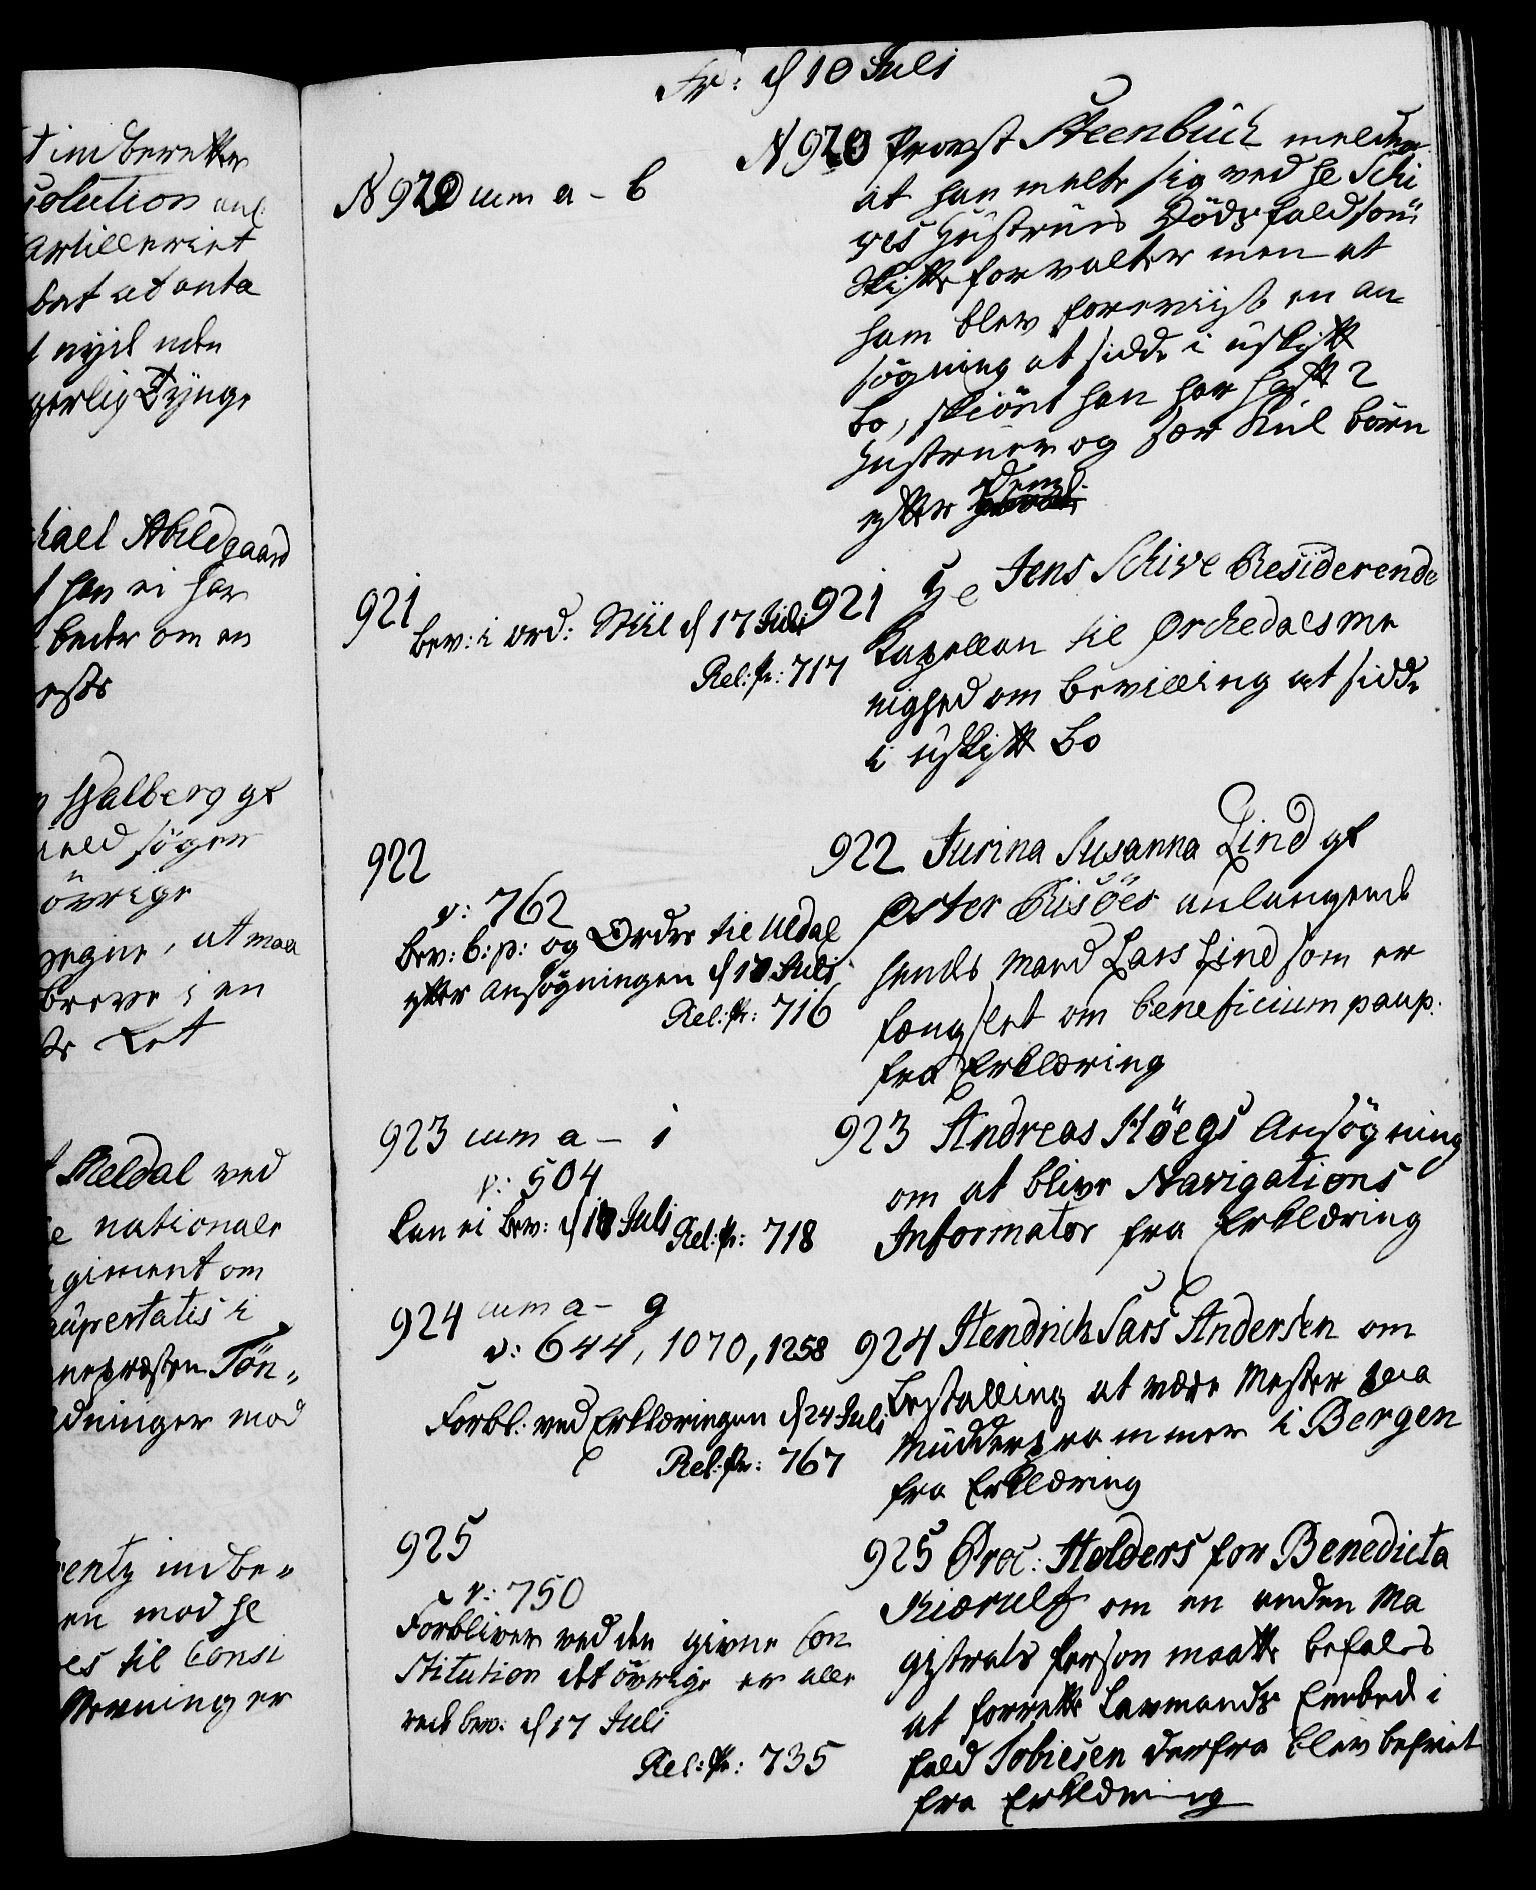 Fr: d 10 Juli
N 920 cum a - b
N 920 Provst Steenbuch melder
at han meldte sig ved Hr Schi
ves Hustrues Dödsfald som
Skifteforvalter men at
ham blev foreviist en an-
søgning at sidde i uskift
bo, skiönt han har haft 2
Hustruer og har Kul börn
efter dem
921
Bev: i ord: Stiil d 17 Juli
Rel: Pr: 717
921 Hr Jens Schive Residerende
Kapellan til Orchedals me
nighed om bevilling at sidde
i uskift bo
922
v: 762
Bev: b: p: og Ordre til Uldal
efter ansøgningen d 10 Juli
Rel: Pr: 716
922 Jurina Susanna Lind af
Oster Riisöer anlangende
hendes Mand Lars Lind som er
fængslet om beneficium paup:
fra Erklæring
923 cum a - i
v: 504
Kan ei bev: d 10 Juli Rel: Pr: 718
923 Andreas Höegs Ansögning
om at blive Navigations
Informator fra Erklæring
924 cum a - g
v: 644, 1070, 1258
Forbl: ved Erklæringen d 24 Juli
Rel: Pr: 767
924 Hendrich Lars Andersen om
Bestalling at være Mester paa
Mudderprammen i Bergen
fra Erklæring
925
v: 750
Forbliver ved den givne Con
stitution det övrige er alle
rede bev: d 17 Juli
Rel: Pr: 735
925 Proc: Holders for Benedicta
Kiærulf om en anden Ma
gistrats Person maatte befales
at forrette Laugmands Embed i
fald Tobiesen derfra blev befriet
fra Erklæring
t indberetter
solution anl:
Artilleriet
bet at anta
nyie uden
gerlig Tynge
chael Abildgaard
han ei har
beder om en
Hjalberg af
søger
övrige
egne, at maa
breve i en
Ret
Meldal ved
nationale
giment om
aupertatis i
nepræsten Tön-
dninger mod
entz indbe-
en mod Hr
es til Consi